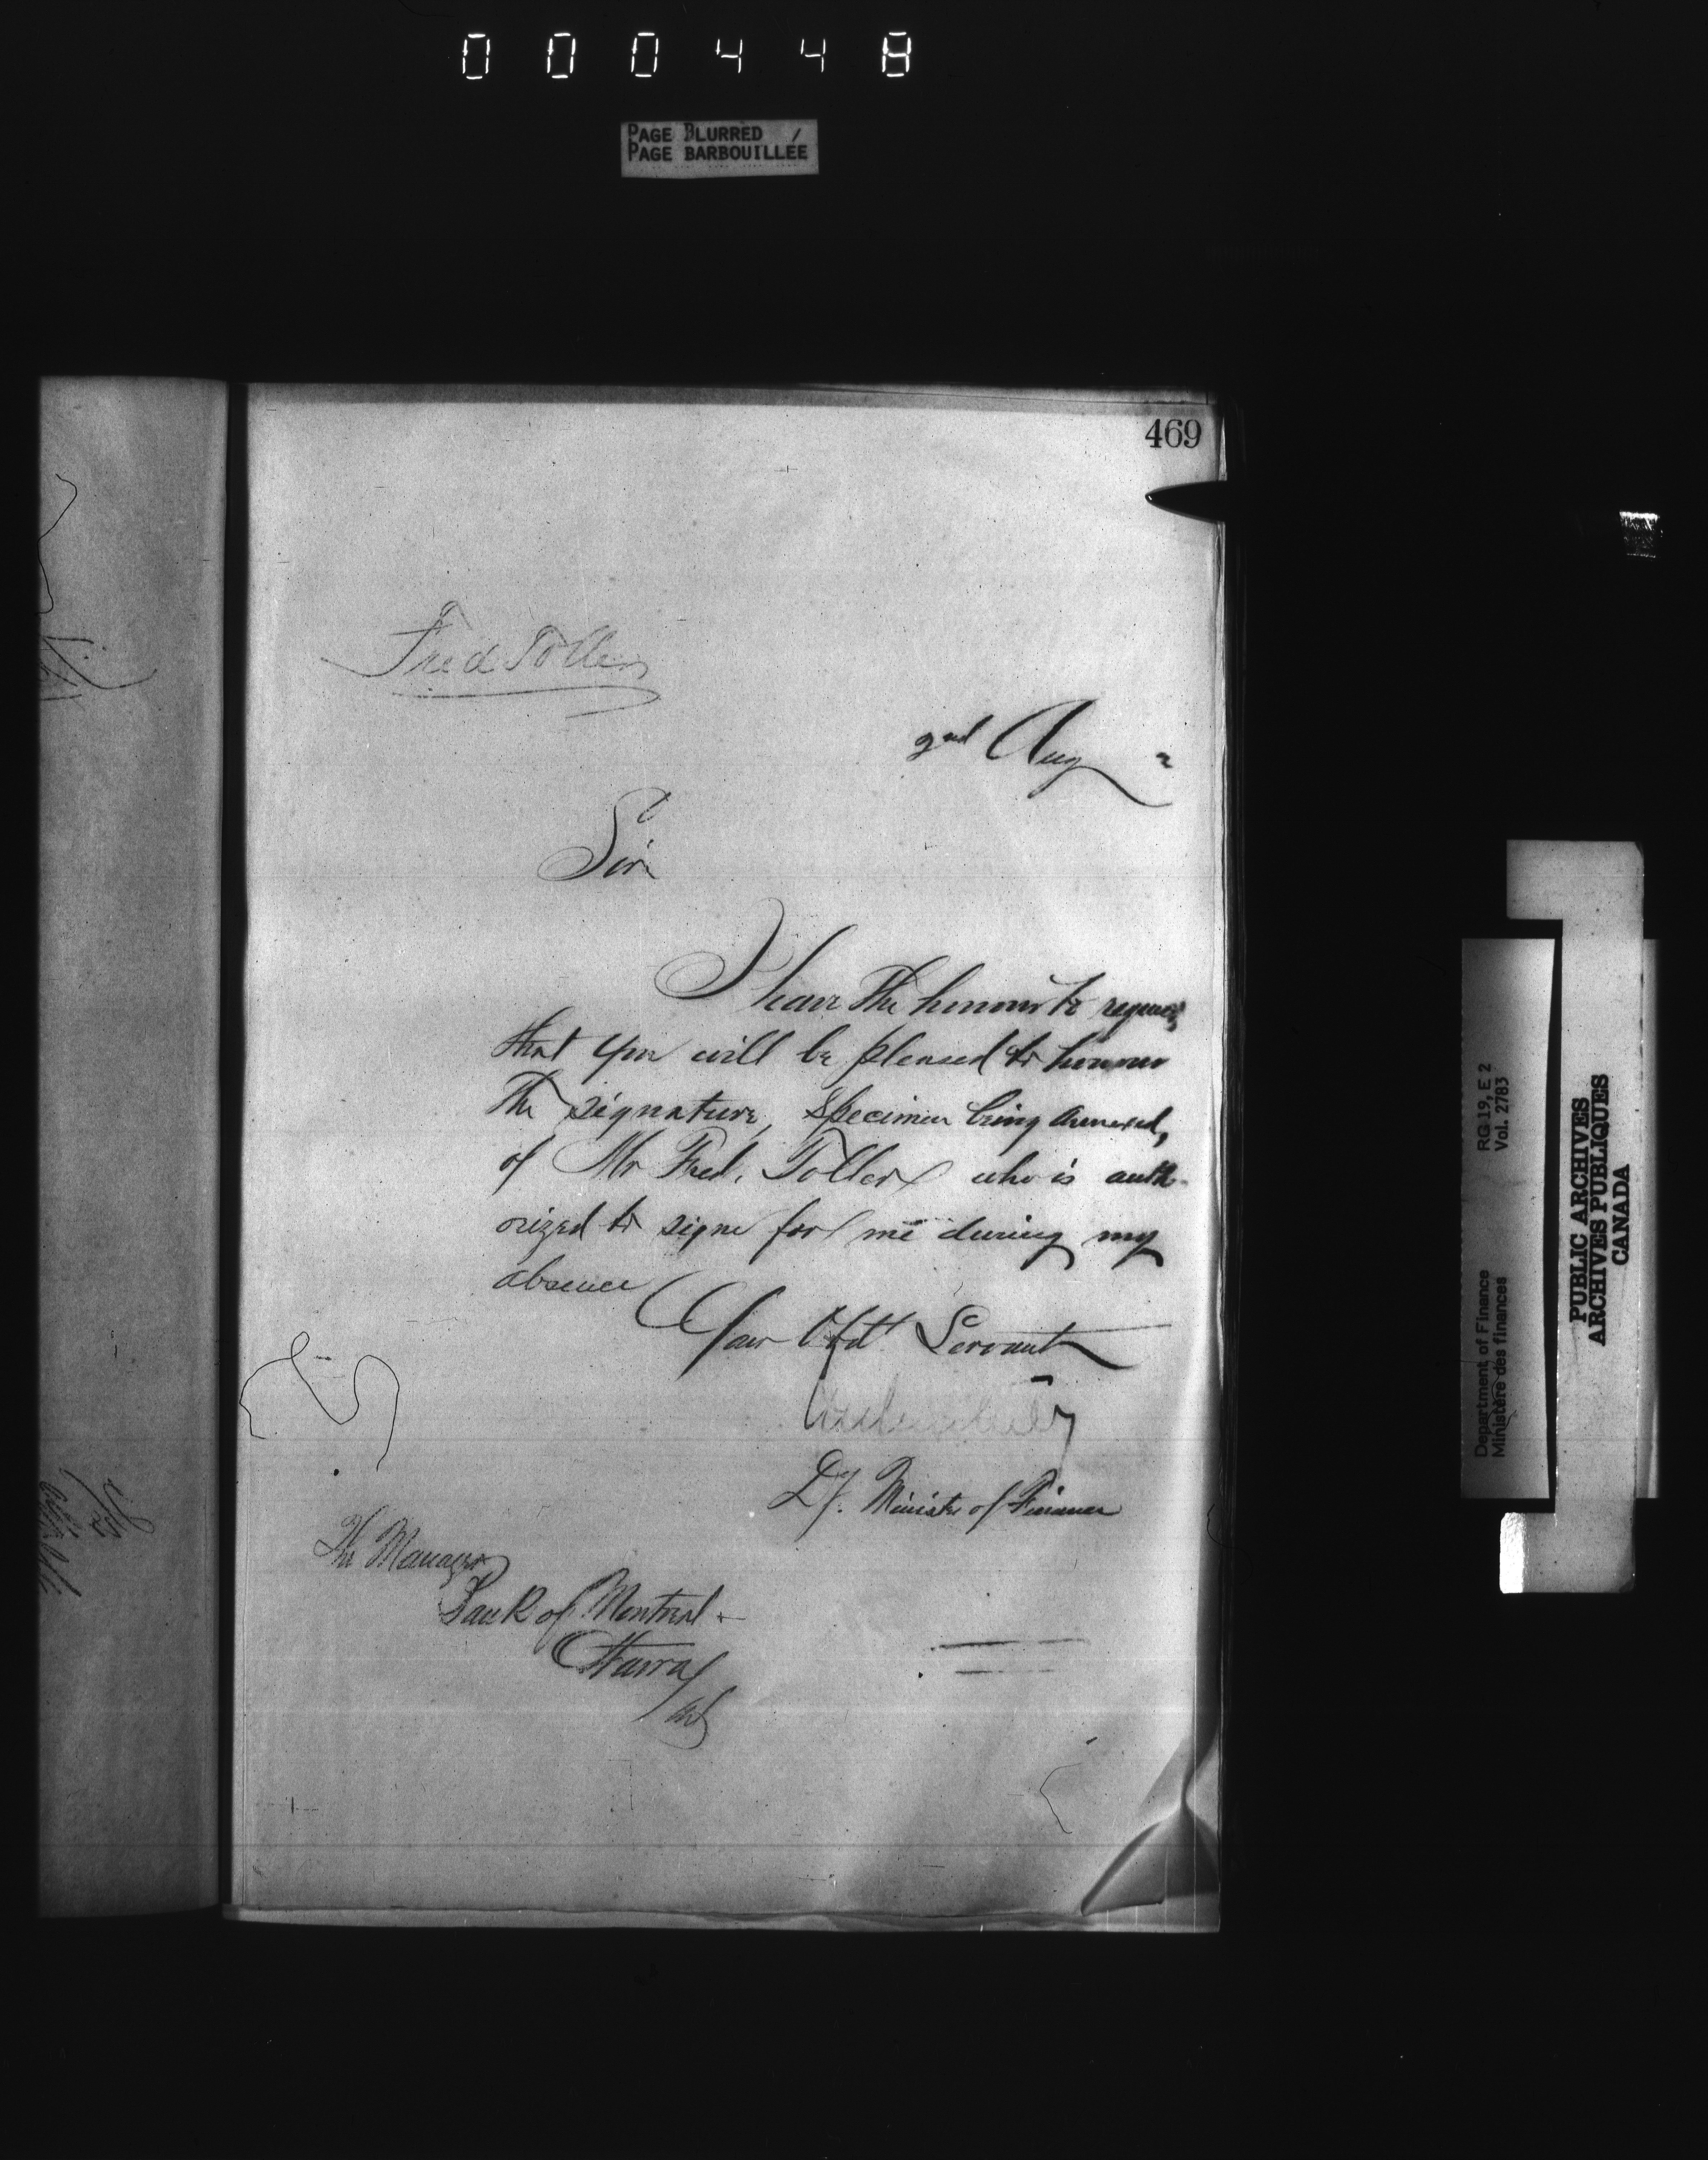 000448
PAGE BLURRED
PAGE BARBOUILLÉE
469
Fred Toller
2nd Aug 2
Sir
I have the honour to request
that you will be pleased to honour
the signature, specimen being annexed,
of Mr Fred. Toller who is auth-
orized to signe for me during my
absence
Your Obdt Servant
Dy. Minister of Finance
The Manager
Bank of Montreal
Ottawa
RG 19, E 2
Vol. 2783
Department of Finance
Ministère des finances
PUBLIC ARCHIVES
ARCHIVES PUBLIQUES
CANADA